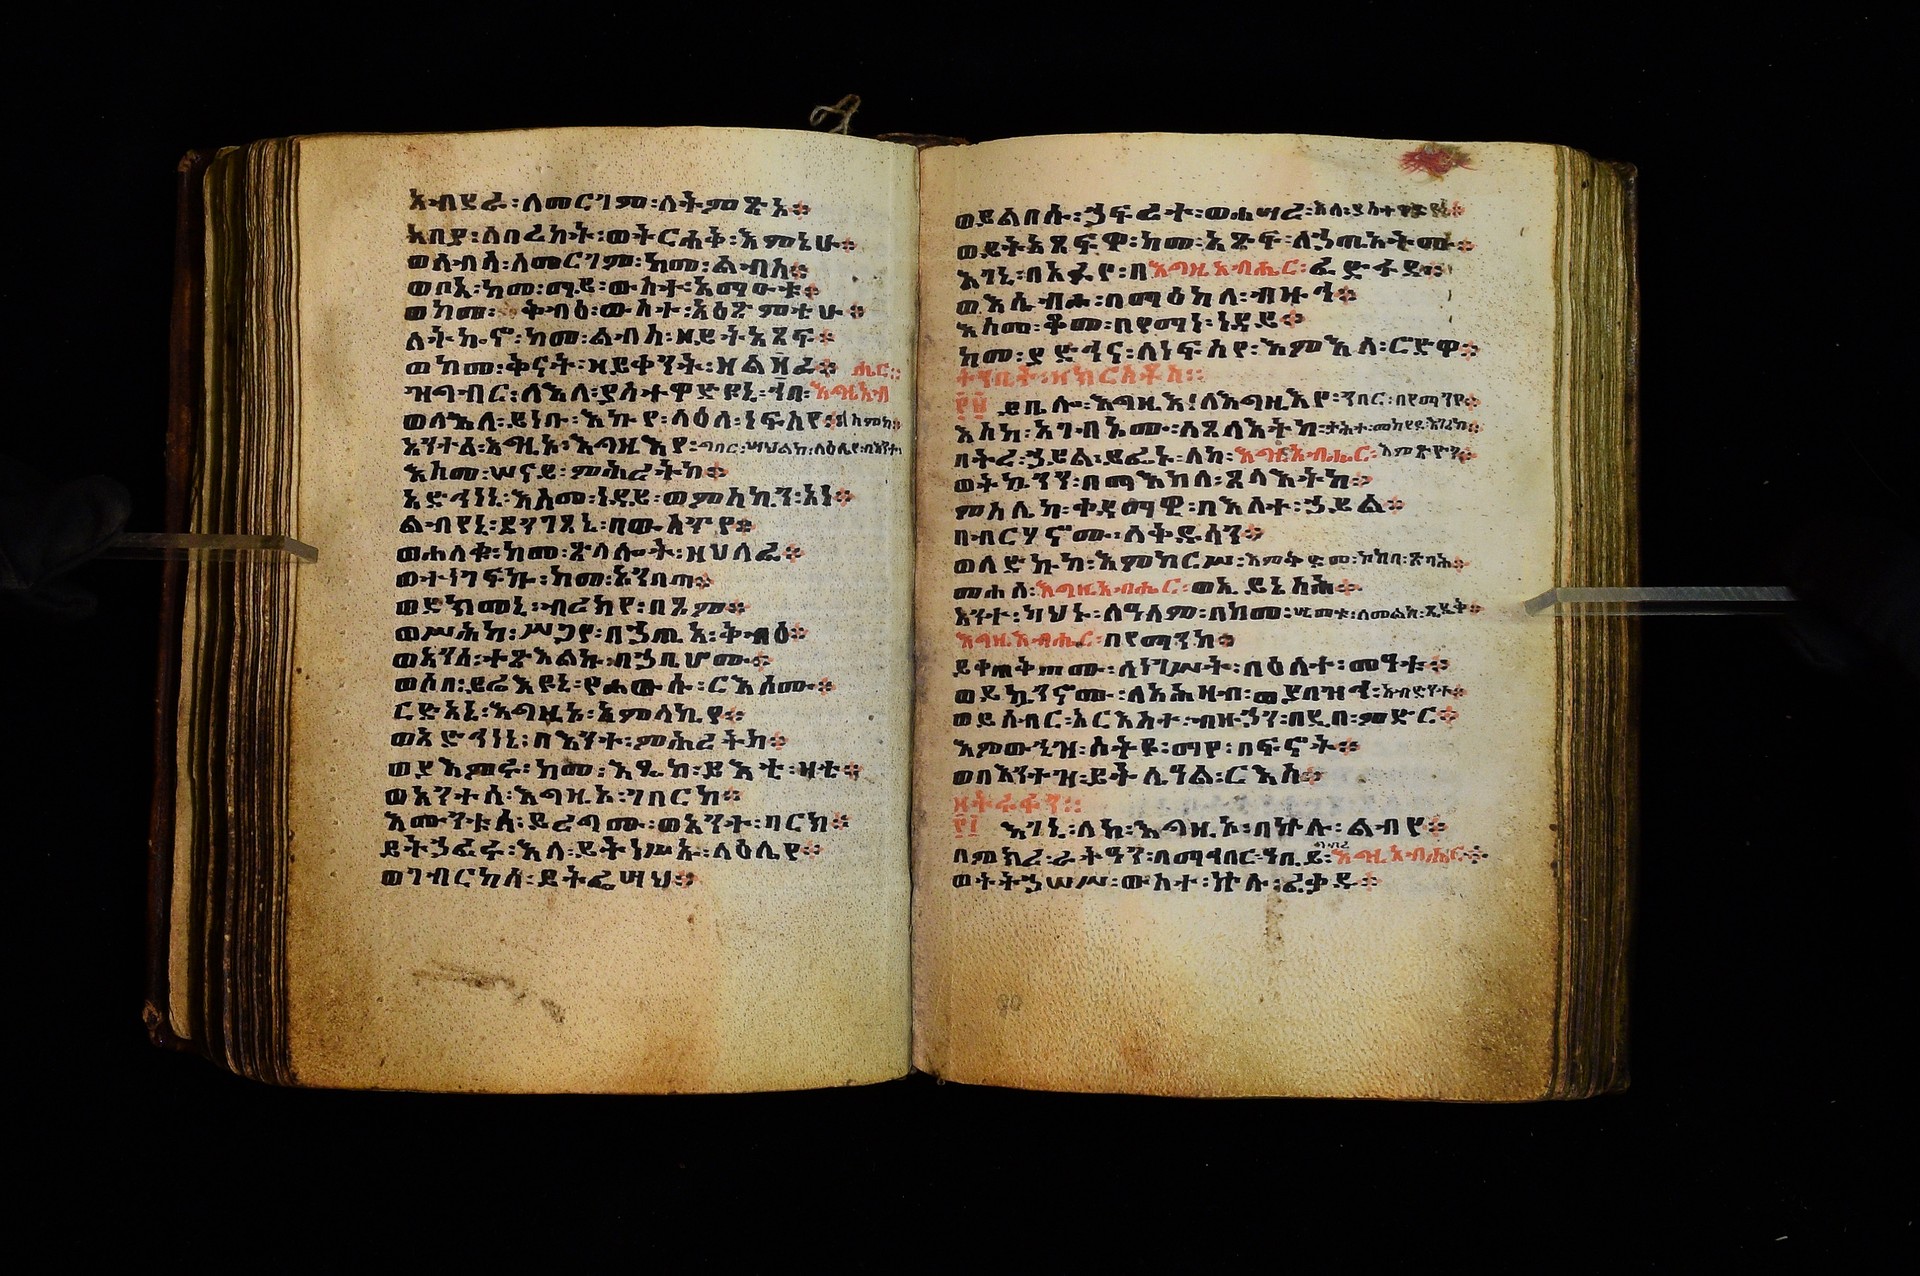 አብደራ፡ለመርገም፡ለትምጽአ።
አበያ፡ለበረከት፡ወትርሐቅ፡እምኔሁ።
ወለብሳ፡ለመርገም፡ከመ፡ልብስ።
ወቦአ፡ከመ፡ማይ፡ውስተ፡አማዑቱ።
ወከመ፡ቅብዕ፡ውስተ፡አዕጽምቲሁ።
ለትኩኖ፡ከመ፡ልብስ፡ዘይትአጸፍ።
ወከመ፡ቅናት፡ዘይቀንት፡ዘልፈ። ሔር።
ዝግብር፡ለእለ፡ያስተዋድዩኒ፡ኀበ፡እግዚአብ
ወለእለ፡ይነቡ፡እኩየ፡ላዕለ፡ነፍስየ።
አንተሰ፡እግዚኦ፡እግዚእየ፡ግበር፡ሣህልከ፡ላዕሌየ፡በእንተ፡
እስመ፡ሠናይ፡ምሕረትከ።
አድኅነኒ፡እስመ፡ነዳይ፡ወምስኪን፡አነ።
ልብየኒ፡ደንገጸኒ፡በውስጥየ።
ወሐለቁ፡ከመ፡ጽላሎት፡ዘኀለፈ።
ወተነገፍኩ፡ከመ፡አንበጣ።
ወድክመኒ፡ብረክየ፡በጾም።
ወሥሕከ፡ሥጋየ፡በኃጢአ፡ቅብዕ።
ወአንሰ፡ተጽእልኩ፡በኃቤሆሙ።
ወሶበ፡ይሬእዩኒ፡የሐውሱ፡ርእሶሙ።
ርድአኒ፡እግዚኦ፡አምላኪየ።
ወአድኅነኒ፡በእንተ፡ምሕረትከ።
ወያእምሩ፡ከመ፡እዴከ፡ይእቲ፡ዛቲ።
ወአንተሰ፡እግዚኦ፡ገበርከ።
እሙንቱሰ፡ይረግሙ፡ወአንተ፡ባርክ።
ይትኃፈሩ፡እለ፡ይትነሥኡ፡ላዕሌየ።
ወገብርከሰ፡ይትፌሣሕ።
ወይልበሱ፡ኃፍረተ፡ወሐሣረ፡እለ፡
ወይትአጸፍዋ፡ከመ፡አጽፍ፡ለኃጢአቶሙ።
እገኒ፡በአፉየ፡በእግዚአብሔር፡ፈድፋደ።
ወእሴብሖ፡በማዕከለ፡ብዙኅ።
እስመ፡ቆመ፡በየማነ፡ነዳይ።
ከመ፡ያድኅና፡ለነፍስየ፡እምእለ፡ርድዋ።
ትንቢት፡ዘክርስቶስ።
፻፱ ይቤሎ፡እግዚእ፡ለእግዚእየ፡ንበር፡በየማንየ።
እስከ፡አገብኦሙ፡ለጸላእትከ፡ታሕተ፡መከየደ፡እገሪከ።
በትረ፡ኃይል፡ይፌኑ፡ለከ፡እግዚአብሔር፡እምጽዮን።
ወትኴንን፡በማእከለ፡ጸላእትከ።
ምስሌከ፡ቀዳማዊ፡በእለተ፡ኃይል።
በብርሃኖሙ፡ለቅዱሳን።
ወለድኩከ፡እምከርሥ፡እምቅድመ፡ኮከበ፡ጽባሕ።
መሐለ፡እግዚአብሔር፡ወኢይኔስሕ።
አንተ፡ካህኑ፡ለዓለም፡በከመ፡ሢመቱ፡ለመልከ፡ጼዴቅ።
እግዚአብሔር፡በየማንከ።
ይቀጠቅጦሙ፡ለነገሥት፡በዕለተ፡መዓቱ።
ወይኴንኖሙ፡ለአሕዛብ፡ወያበዝኅ፡አብድንተ።
ወይሰብር፡አርእስተ፡ብዙኃን፡በዲበ፡ምድር።
እምውኂዝ፡ሰትዩ፡ማየ፡በፍኖት።
ወበእንተዝ፡ይትሌዓል፡ርእስ።
ዘትሩፋን።
፻፲ እገኒ፡ለከ፡እግዚኦ፡በኵሉ፡ልብየ።
በምክረ፡ራትዓን፡በማኅበር፡ዓቢይ፡ግብረ፡እግዚአብሔር።
ወትትኃሠሥ፡ውስተ፡ኵሉ፡ፈቃዱ።
90